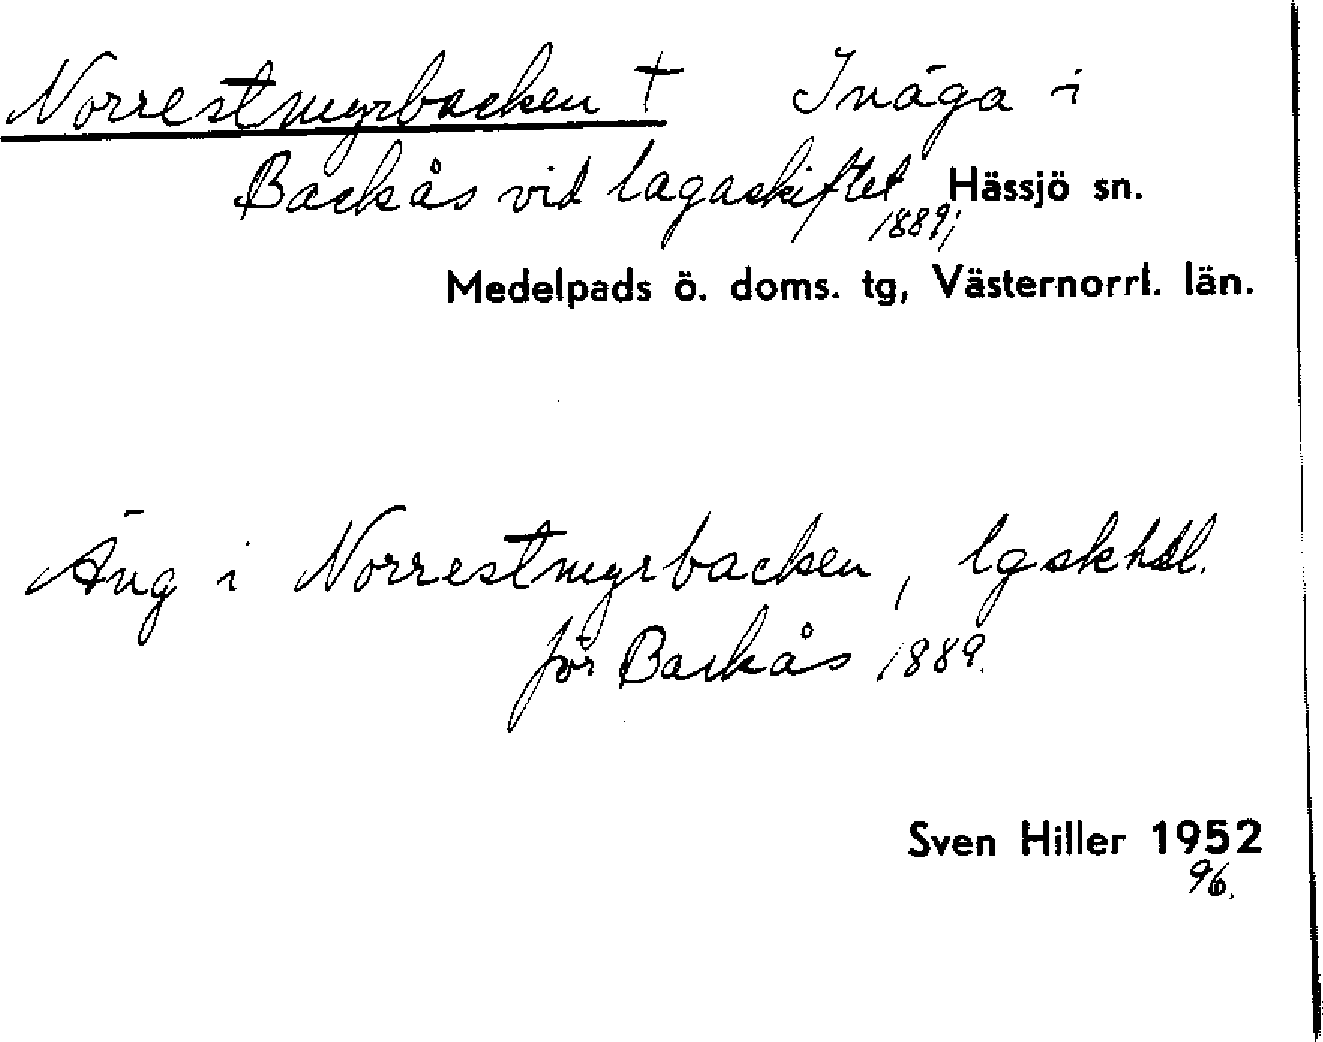 Norrestmyrbacken † Inäga i
Backås vid lagaskiftet Hässjö sn.
1889;
Medelpads ö. doms. tg, Västernorrl. län.
Äng i Norrestmyrbacken, lgskhdl.
för Backås 1889.
Sven Hiller 1952
96.